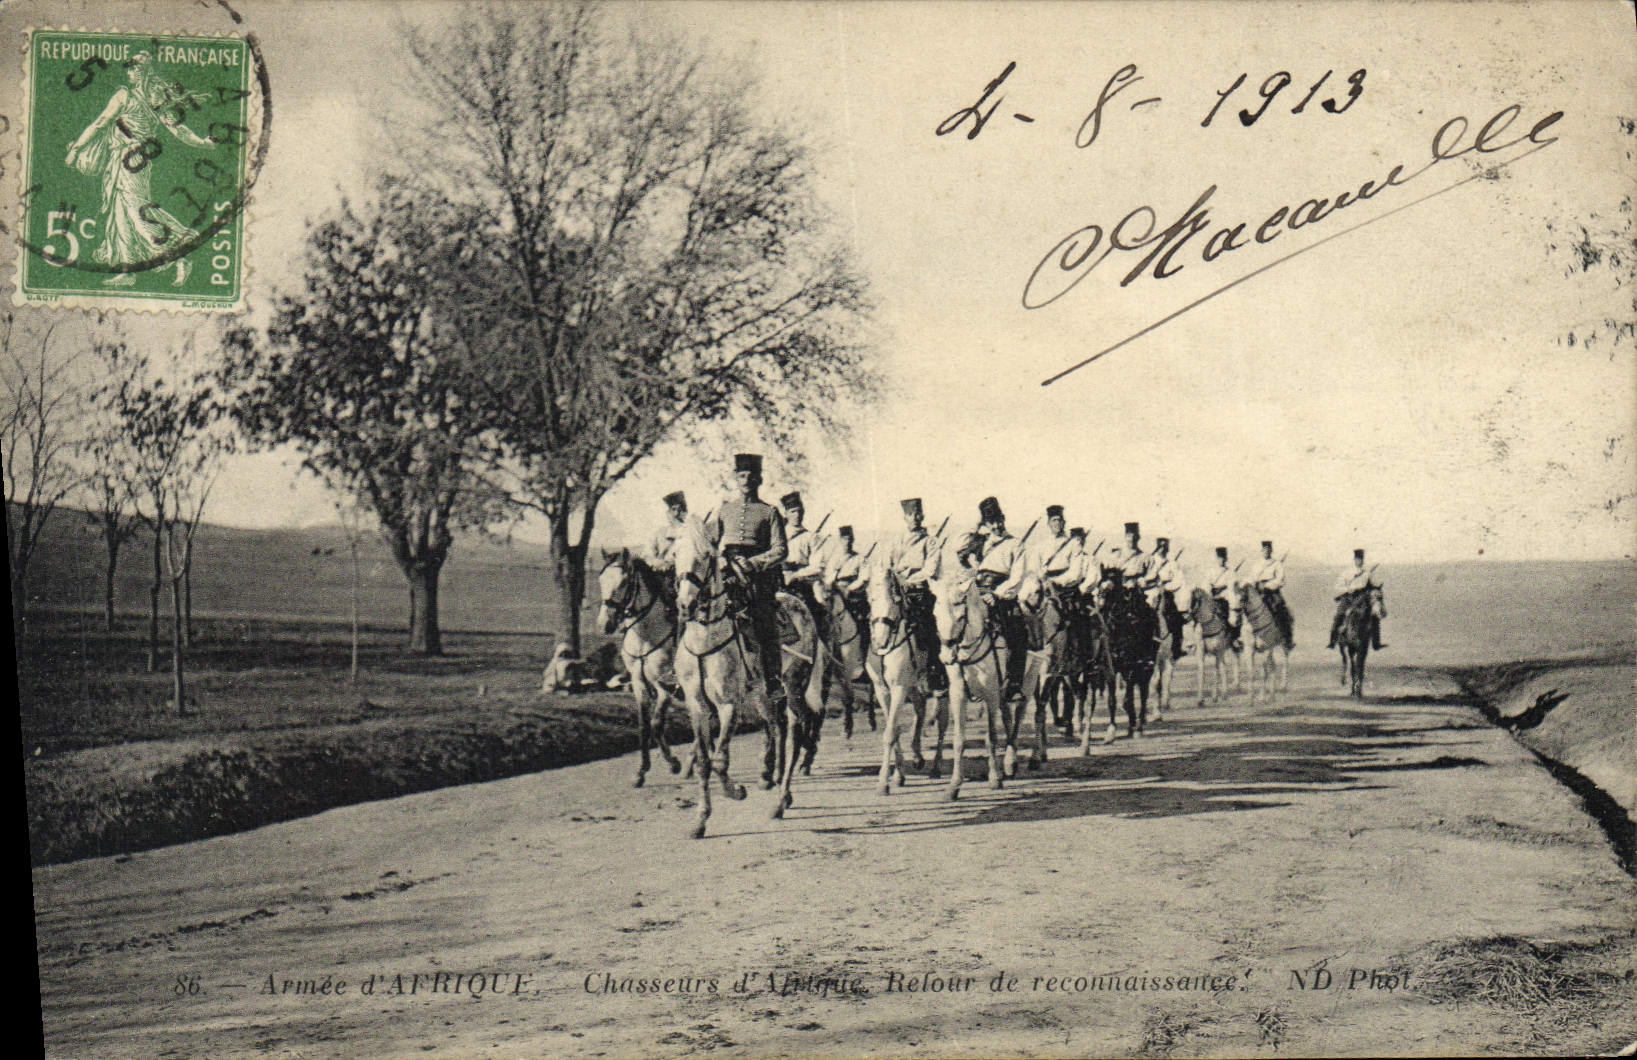 REPUBLIQUE FRANÇAISE
5c
POSTES
O. ROTY
E. MOUCHON
5 -8
4 - 8 - 1913
86. — Armée d'AFRIQUE. — Chasseurs d'Afrique. Retour de reconnaissance. ND Phot.